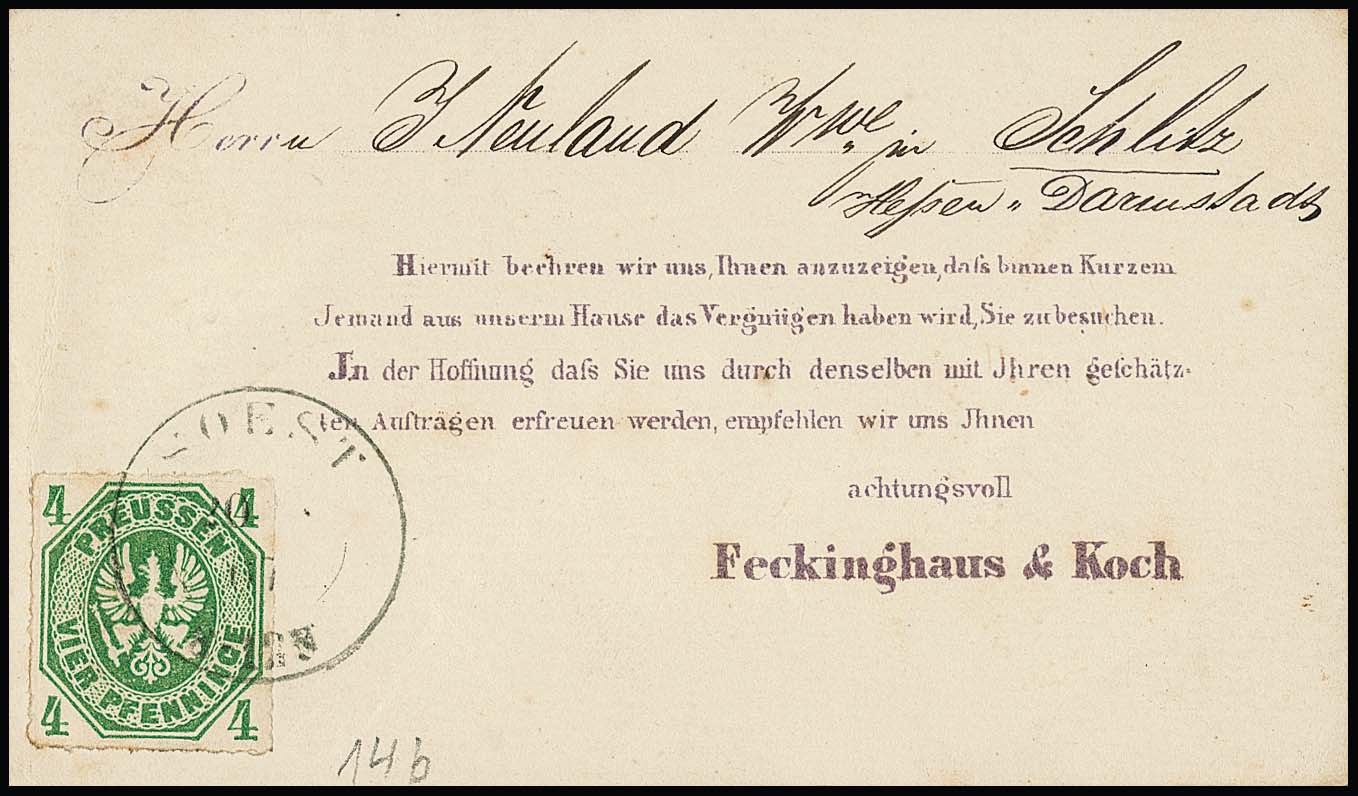 Herrn J Neuland Wwe in Schlitz
Heſsen „ Darmstadt
Hiermit beehren wir uns, Ihnen anzuzeigen, daſs binnen Kurzem
Jemand aus unserm Hause das Vergnügen haben wird, Sie zu besuchen.
In der Hoffnung daſs Sie uns durch denselben mit Jhren geſchätz-
ten Aufträgen erfreuen werden, empfehlen wir uns Jhnen
achtungsvoll
Feckinghaus & Koch
SOEST
4 4
PREUSSEN
VIER PFENNINGE
4 4
14 b